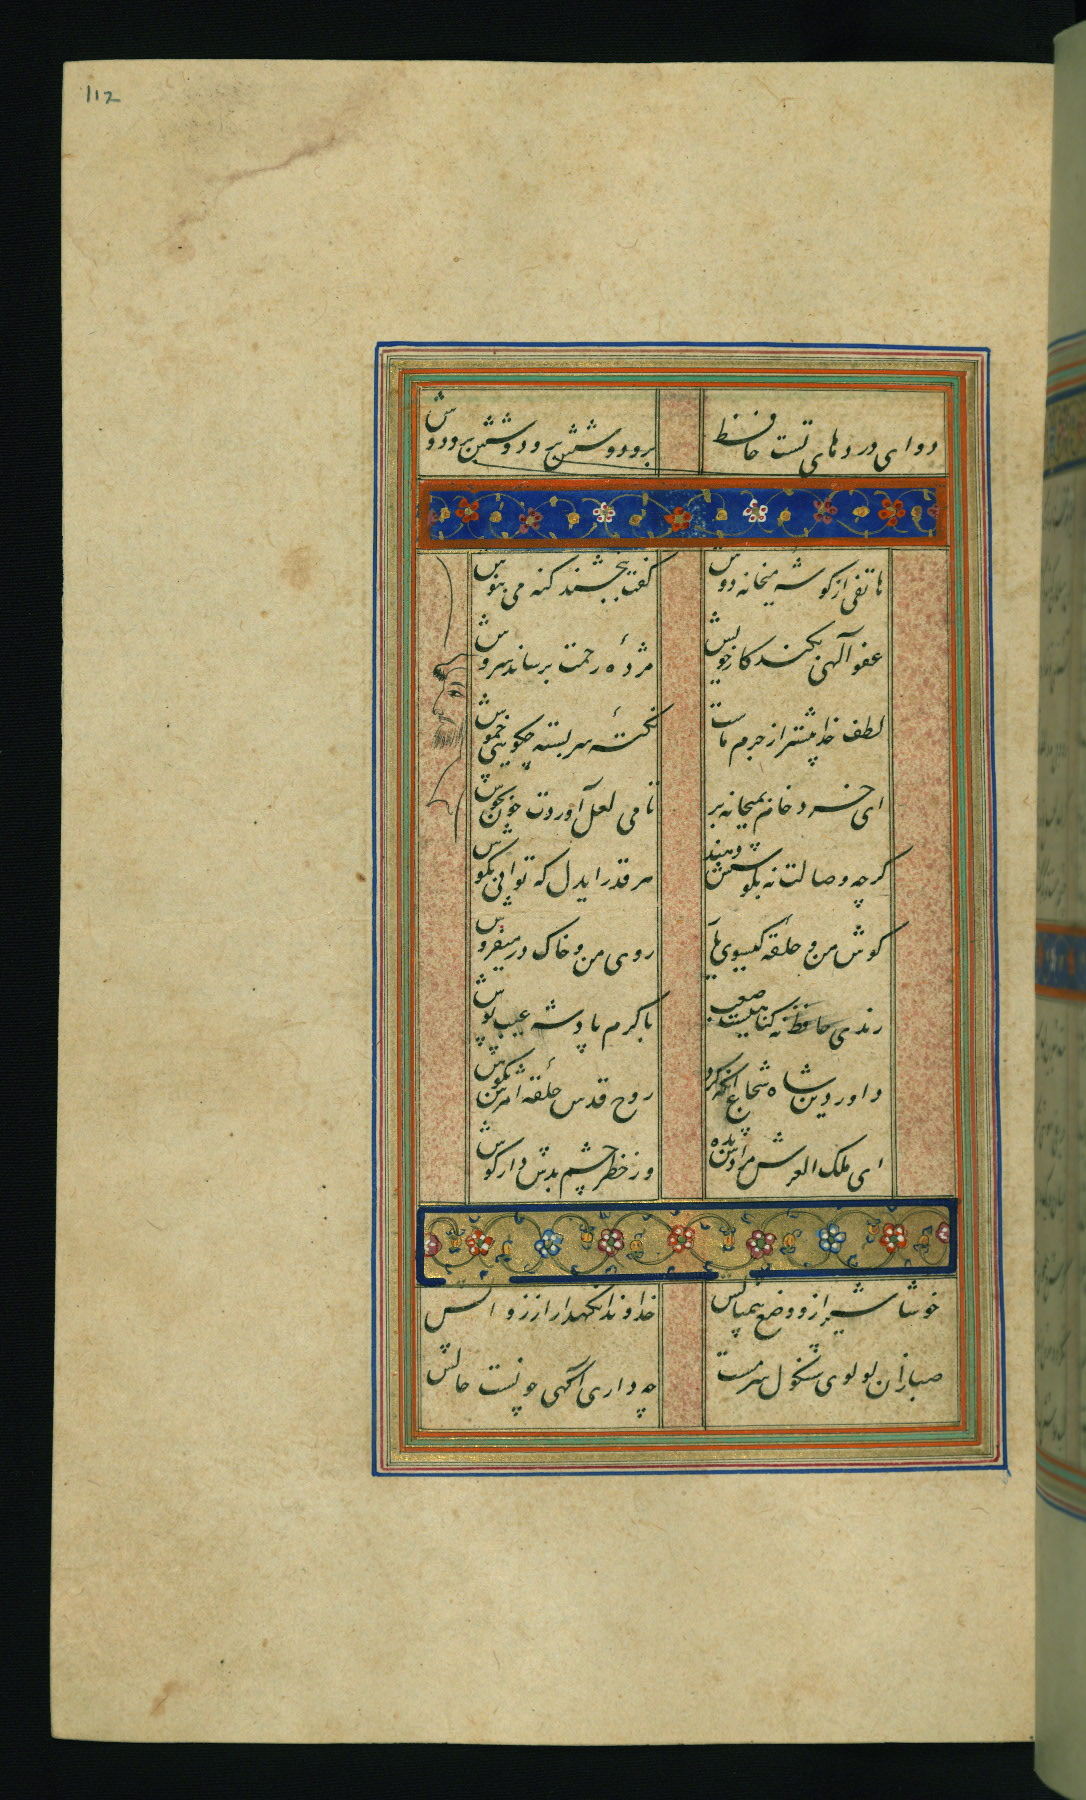 112
دوای دردهای تست حافظ برودوشش برودوشش برودوش
هاتفی از کوشه میخانه دوش کفت ببخشند کنه می بنوش
عفو آلهی بکند کار خویش مژدهٔ رحمت برساند سروش
لطف خدا بیشتر از جرم ماست نکتهٔ سربسته چکویی خموش
ای خسرو خانم بمیخانه بر تا می لعل آوردت خون بجوش
کرچه وصالت نه بکوشش دهند هر قدر ایدل که توانی بکوش
کوش من و حلقه کیسوی یار روی من و خاک در میفروش
رندی حافظ نه کناهیست صعب با کرم پادشه عیب پوش
داور دین شاه شجاع آنکه کرد روح قدس حلقهٔ امرش بکوش
ای ملک العرش مرادش بده وز خطر چشم بدش دار کوش
خوشا شیراز و وضع بیمثالش خداوندا نکهدار از زوالش
صبا زان لولوی شنکول سرمست چه داری آکهی چونست حالش